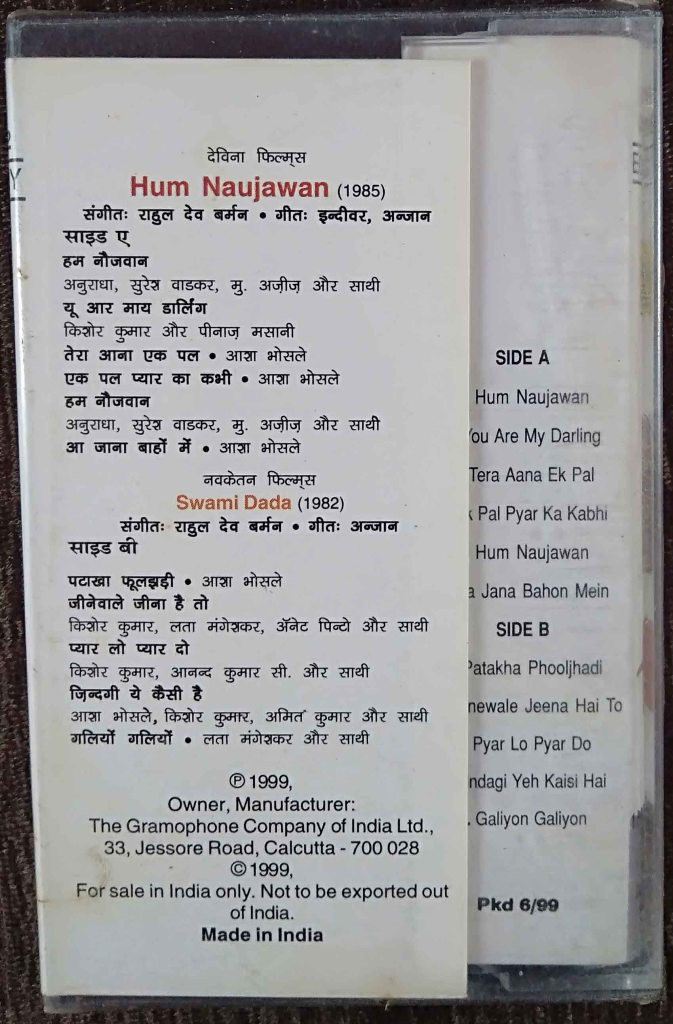 देविना फिल्म्स
Hum Naujawan (1985)
संगीतः राहुल देव बर्मन • गीतः इन्दीवर, अन्जान
साइड ए
हम नौजवान
अनुराधा, सुरेश वाडकर, मु. अज़ीज़ और साथी
यू आर माय डार्लिंग
किशोर कुमार और पीनाज़ मसानी
तेरा आना एक पल • आशा भोसले
एक पल प्यार का कभी • आशा भोसले
हम नौजवान
अनुराधा, सुरेश वाडकर, मु. अज़ीज़ और साथी
आ जाना बाहों में • आशा भोसले
नवकेतन फिल्म्स
Swami Dada (1982)
संगीतः राहुल देव बर्मन • गीतः अन्जान
साइड बी
पटाखा फूलझड़ी • आशा भोसले
जीनेवाले जीना है तो
किशोर कुमार, लता मंगेशकर, ॲनेट पिन्टो और साथी
प्यार लो प्यार दो
किशोर कुमार, आनन्द कुमार सी. और साथी
ज़िन्दगी ये कैसी है
आशा भोसले, किशोर कुमार, अमित कुमार और साथी
गलियों गलियों • लता मंगेशकर और साथी
℗ 1999,
Owner, Manufacturer:
The Gramophone Company of India Ltd.,
33, Jessore Road, Calcutta - 700 028
© 1999,
For sale in India only. Not to be exported out
of India.
Made in India
SIDE A
Hum Naujawan
You Are My Darling
Tera Aana Ek Pal
Pal Pyar Ka Kabhi
Hum Naujawan
Jana Bahon Mein
SIDE B
Patakha Phooljhadi
newale Jeena Hai To
Pyar Lo Pyar Do
ndagi Yeh Kaisi Hai
. Galiyon Galiyon
Pkd 6/99